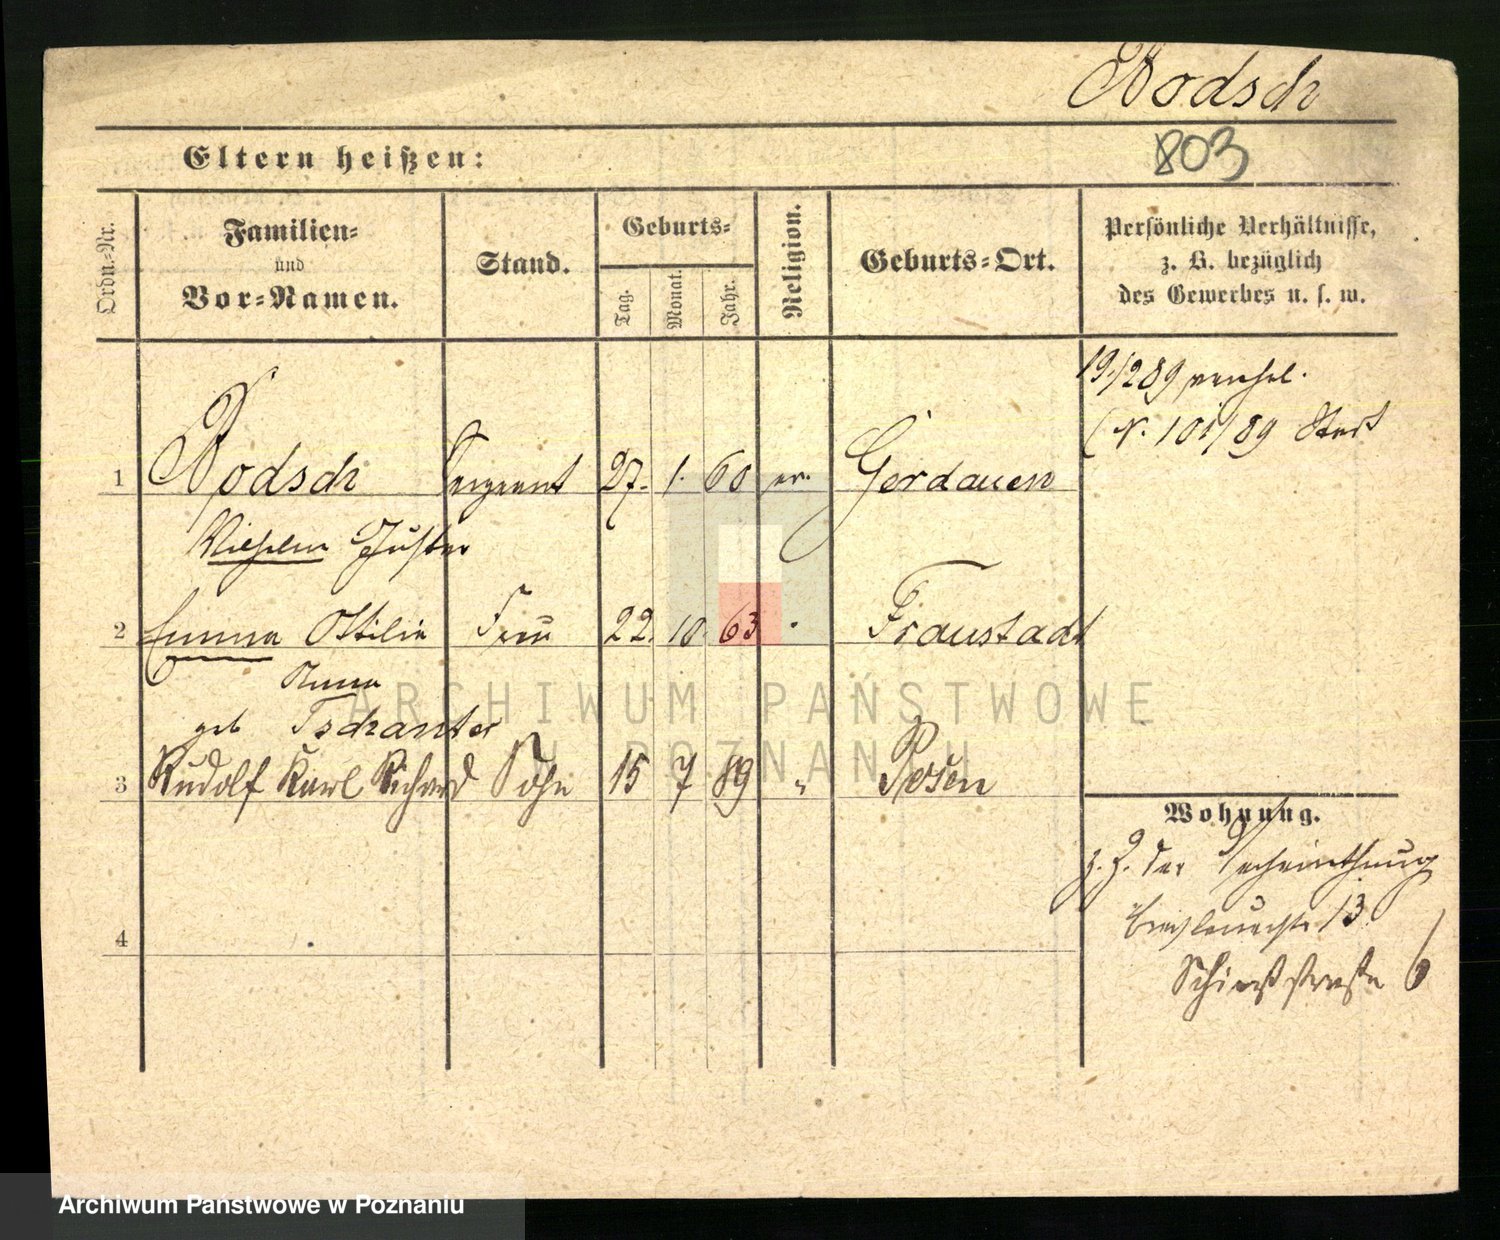 Rodsch
Eltern heißen:
803
Ordn.-Nr.
Familien-
und
Vor-Namen.
Stand.
Geburts-
Tag.
Monat.
Jahr.
Religion.
Geburts-Ort.
Persönliche Verhältnisse,
z. B. bezüglich
des Gewerbes u. s. w.
1 Rodsch Sergeant 27. 1. 60 ev. Gerdauen
Wilhelm Gustav
2 Emma Ottilie Frau 22. 10. 63 Fraustadt
Anna
geb Tschanter
3 Rudolf Karl Richard Sohn 15 7 89 " Posen
4
19./289
(N. 101/89
Wohnung.
z. Z. der
13
Schießstraße 6
ARCHIWUM PAŃSTWOWE
W POZNANIU
Archiwum Państwowe w Poznaniu